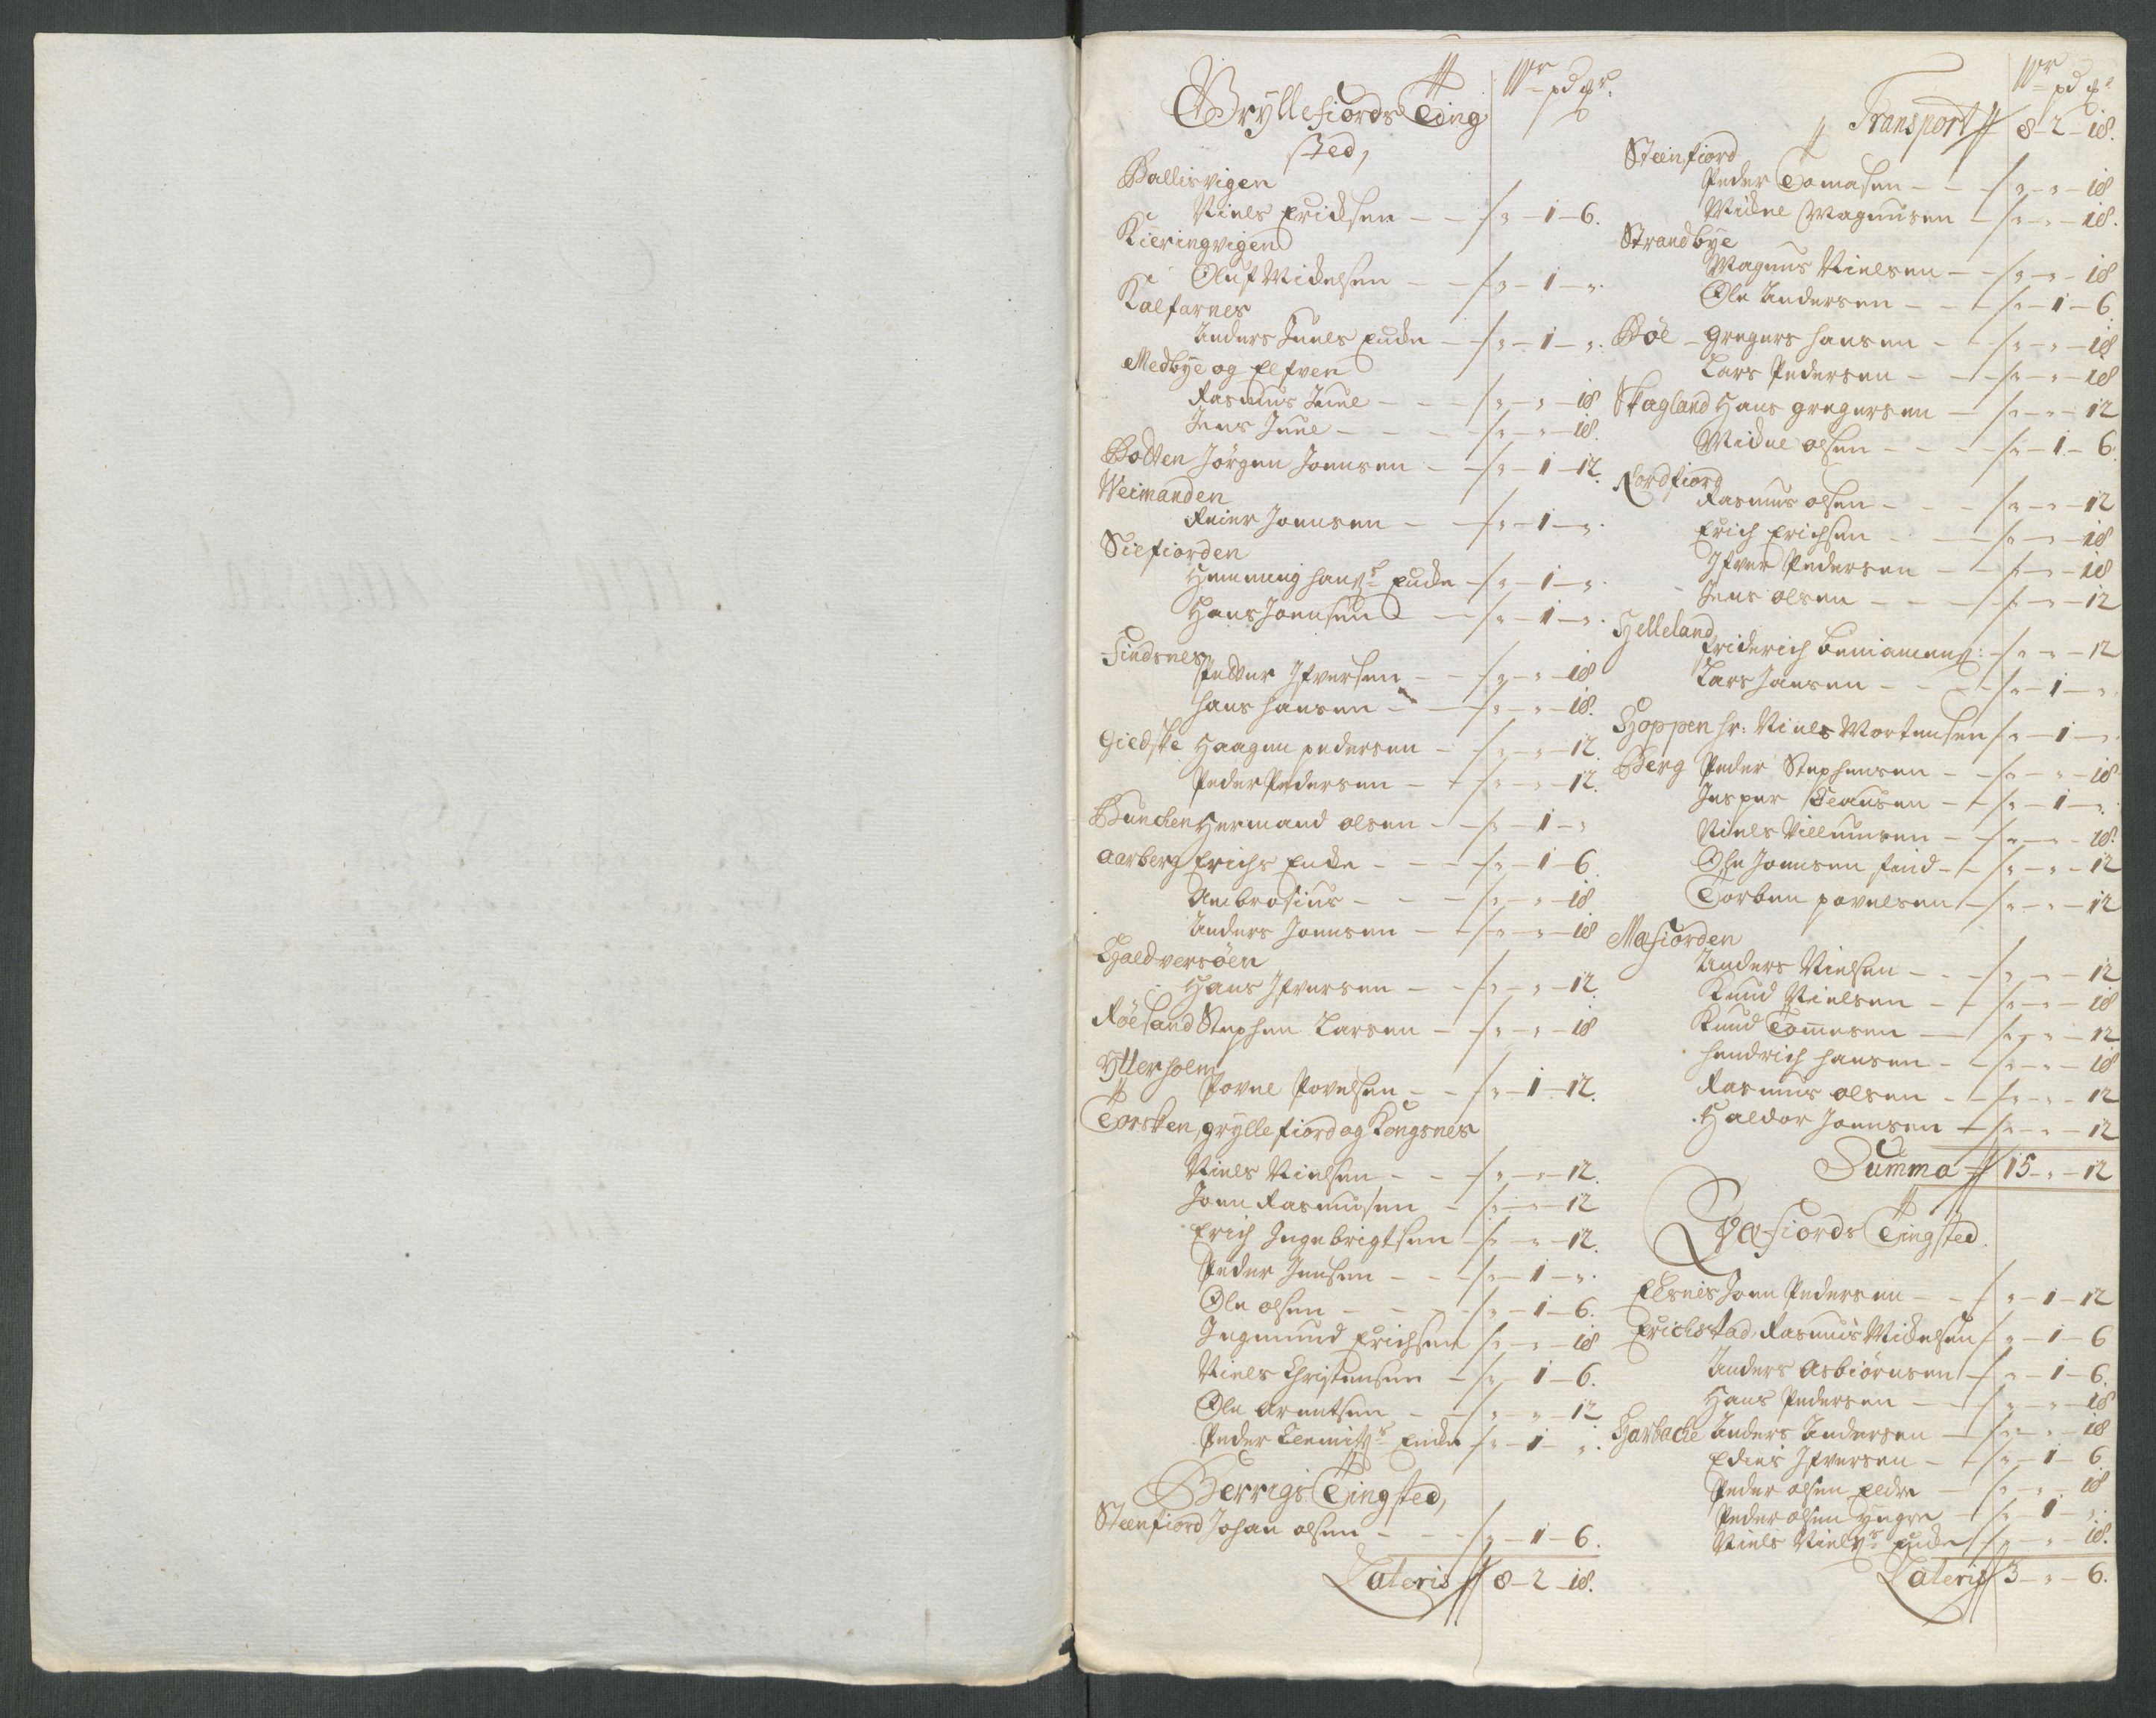 Gryllefiords Ting
sted, Wr pd mr.
Ballisvigen
Niels Ericksen - - - - 1 - 6.
Kieringvigen
Oluf Mickelsen - - - 1 - "
Kalfarnes
Anders Juels Encke - - - 1 - "
Medbye og Elfven
Rasmus Juul - - - " - " - 18
Jens Juul - - - " - " - 18.
Botten Jörgen Joensen - - " - 1 - 12.
Weimanden
Reier Joensen - - " - 1 - "
Siefiorden
Hemming Hanss: Encke - " - 1 - "
Hans Joensen - " - 1 - "
Findsnes
Petter Ifversen - - " - " - 18
Hans Hansen - - " - " - 18.
Giedske Haagen Pedersen - " - " - 12.
Peder Pedersen - " - " - 12.
Bunchen Hermand Olsen - - " - 1 - "
Aarberg Erichs Encke - - - " - 1 - 6.
Ambrosius - - - " - " - 18
Anders Joensen - " - " - 18
Haldversöen
Hans Ifversen - - " - " - 12.
Röesand Stephen Larsen - - " - " - 18
Ytterholm
Povel Povelsen - - " - 1 - 12.
Torsken, gryllefiord og Kongsnes
Niels Nielsen - - " - " - 12.
Joen Rasmusen - " - " - 12
Erich Ingebrigtsen - " - " - 12.
Peder Jensen - - " - 1 - "
Ole Olsen - - - " - 1 - 6.
Ingmund Erichsen " - " - 18
Niels Christensen - " - 1 - 6.
Ole Arentsen - - " - " - 12
Peder Encke - " - 1 - "
Berrigs Tingsted,
Steenfiord Johan Olsen - - - " - 1 - 6.
Lateris 8 - 2 - 18.
Wr pd mr
Transport 8 - 2 - 18.
Steenfiord
Peder Tomasen - - - " - " - 18
Mickel Magnusen - " - " - 18.
Strandbye
Magnus Nielsen - - " - " - 18
Ole Andersen - - - " - 1 - 6.
Böe - Gregers Hansen - - " - " - 18
Lars Pedersen - - - " - " - 18
Skagland Hans Gregersen - " - " - 12
Mickel Olsen - - - " - 1 - 6.
Nordfiord
Rasmus Olsen - - - " - " - 12
Erich Erichsen - - " - " - 18
Ifver Pedersen - - " - " - 18
Jens Olsen - - - " - " - 12
Helleland
Friderich Beniamens: - " - " - 12
Lars Jansen - - - " - 1 - "
Hoppen Hr: Niels Mortensen " - 1 - "
Berg Peder Stephensen - - " - " - 18
Jesper Clausen - - " - 1 - "
Niels Villumsen - - " - " - 18.
Ole Joensen Find - - " - " - 12
Torben Povelsen - " - " - 12
Mefiorden
Anders Nielsen - - " - " - 12
Knud Nielsen - - " - " - 18
Knud Tomesen - " - " - 12
Hendrich Hansen - - " - " - 18
Rasmus Olsen - - " - " - 12
Haldor Joensen - " - " - 12
Summa 15 - " - 12
Qvæfiords Tingsted.
Elsnes Joen Pedersen - - " - 1 - 12
Erichstad, Rasmus Mickelsen " - 1 - 6
Anders Asbiörnsen - " - 1 - 6.
Hans Pedersen - - " - " - 18
Harbache Anders Andersen - " - " - 18
Edies Ifversen - - " - 1 - 6
Peder Olsen Eldre - " - " - 18
Peder Olsen Yngre - " - 1 - "
Niels Niels: Encke - " - " - 18.
Lateris 3 - " - 6.